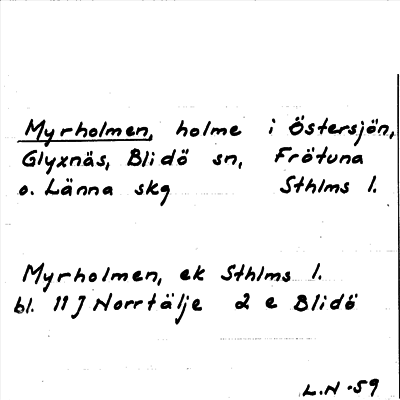 Myrholmen, holme i Östersjön,
Glyxnäs, Blidö sn, Frötuna
o. Länna skg Sthlms l.
Myrholmen, ek Sthlms l.
bl. 11 J Norrtälje 2 e Blidö
L.N -59